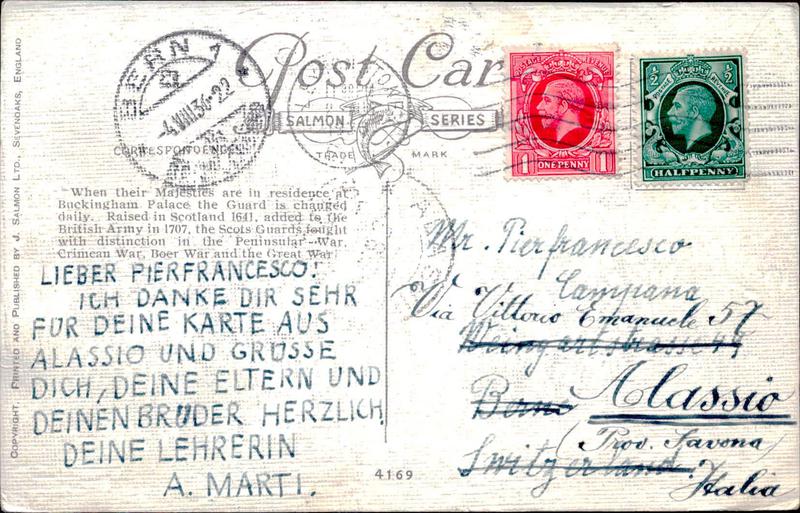 Post Car
SALMON SERIES
TRADE MARK
CORRESPONDENCE
BERN 1
4.VIII.36-22
POSTAGE REVENUE
1 ONE PENNY 1
1/2 1/2
HALFPENNY
"When their Majesties are in residence at
Buckingham Palace the Guard is changed
daily. Raised in Scotland 1641, added to the
British Army in 1707, the Scots Guards fought
with distinction in the Peninsular War,
Crimean War, Boer War and the Great War.
LIEBER PIERFRANCESCO!
ICH DANKE DIR SEHR
FÜR DEINE KARTE AUS
ALASSIO UND GRÜSSE
DICH, DEINE ELTERN UND
DEINEN BRUDER HERZLICH.
DEINE LEHRERIN
A. MARTI.
Mr. Pierfrancesco
Campana
Via Vittorio Emanuele 57
Weingartstrasse
Berne Alassio
(Prov. Savona)
Switzerland Italia
4169
COPYRIGHT. PRINTED AND PUBLISHED BY J. SALMON LTD., SEVENOAKS, ENGLAND